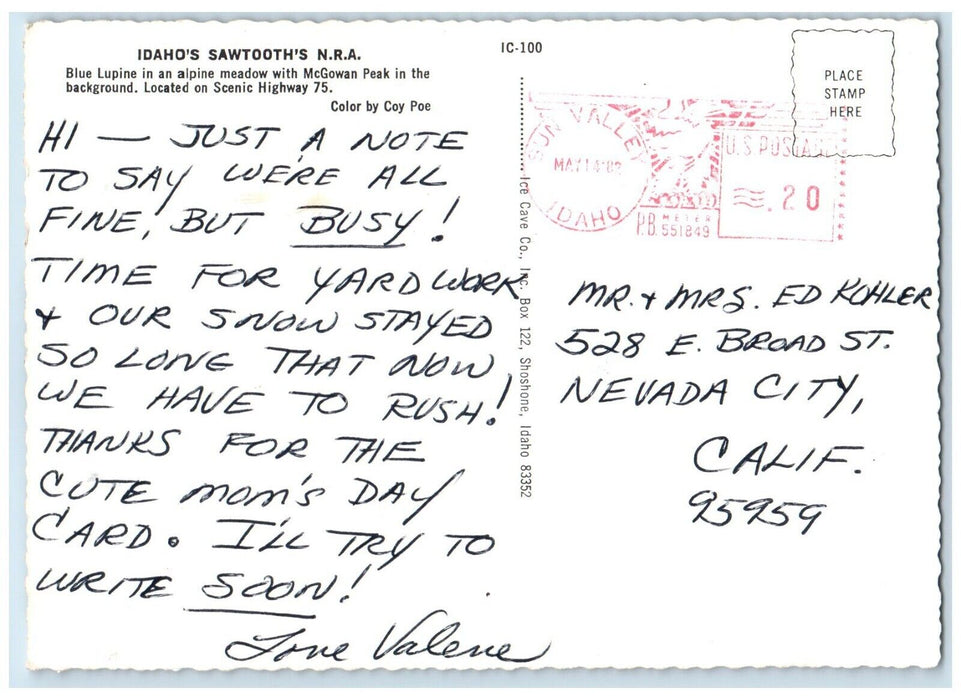 IDAHO'S SAWTOOTH'S N.R.A.
Blue Lupine in an alpine meadow with McGowan Peak in the
background. Located on Scenic Highway 75.
Color by Coy Poe
IC-100
HI — JUST A NOTE
TO SAY WE'RE ALL
FINE, BUT BUSY!
TIME FOR YARDWORK
& OUR SNOW STAYED
SO LONG THAT NOW
WE HAVE TO RUSH!
THANKS FOR THE
CUTE MOM'S DAY
CARD. I'LL TRY TO
WRITE SOON!
Love Valene
Ice Cave Co., Inc. Box 122, Shoshone, Idaho 83352
PLACE
STAMP
HERE
SUN VALLEY
MAY 14 '82
IDAHO
U.S. POSTAGE
.20
P.B. METER
551849
MR. & MRS. ED KOHLER
528 E. BROAD ST.
NEVADA CITY,
CALIF.
95959